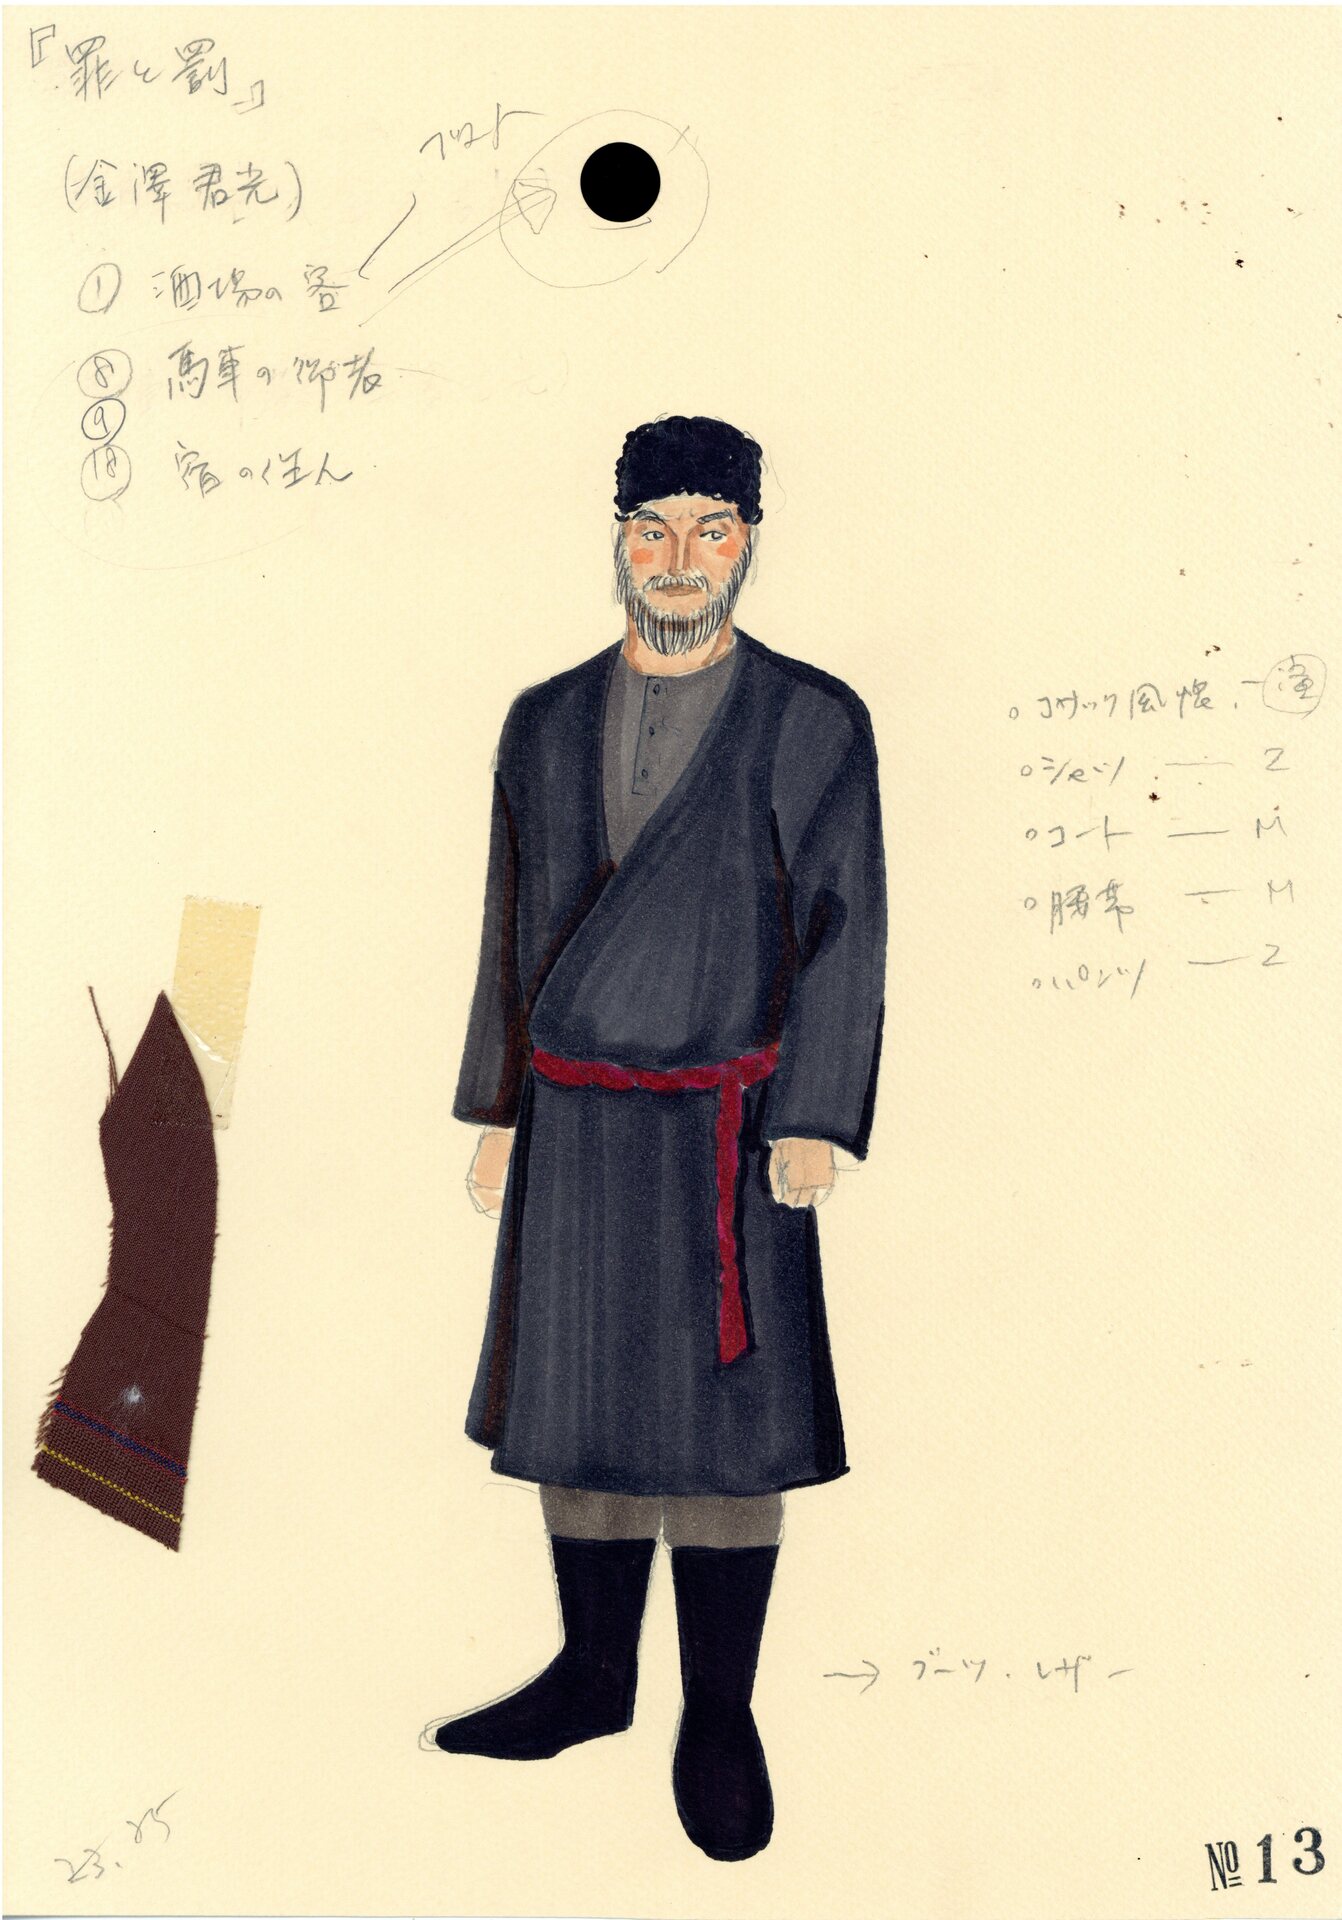 『罪と罰』
(金澤君光)
① 酒場の客
⑧ 馬車の御者
⑨
宿の住人
コサック風帽
シャツ — Z
コート — M
腰帯 — M
パンツ — Z
→ ブーツ・レザー
23.
№ 13